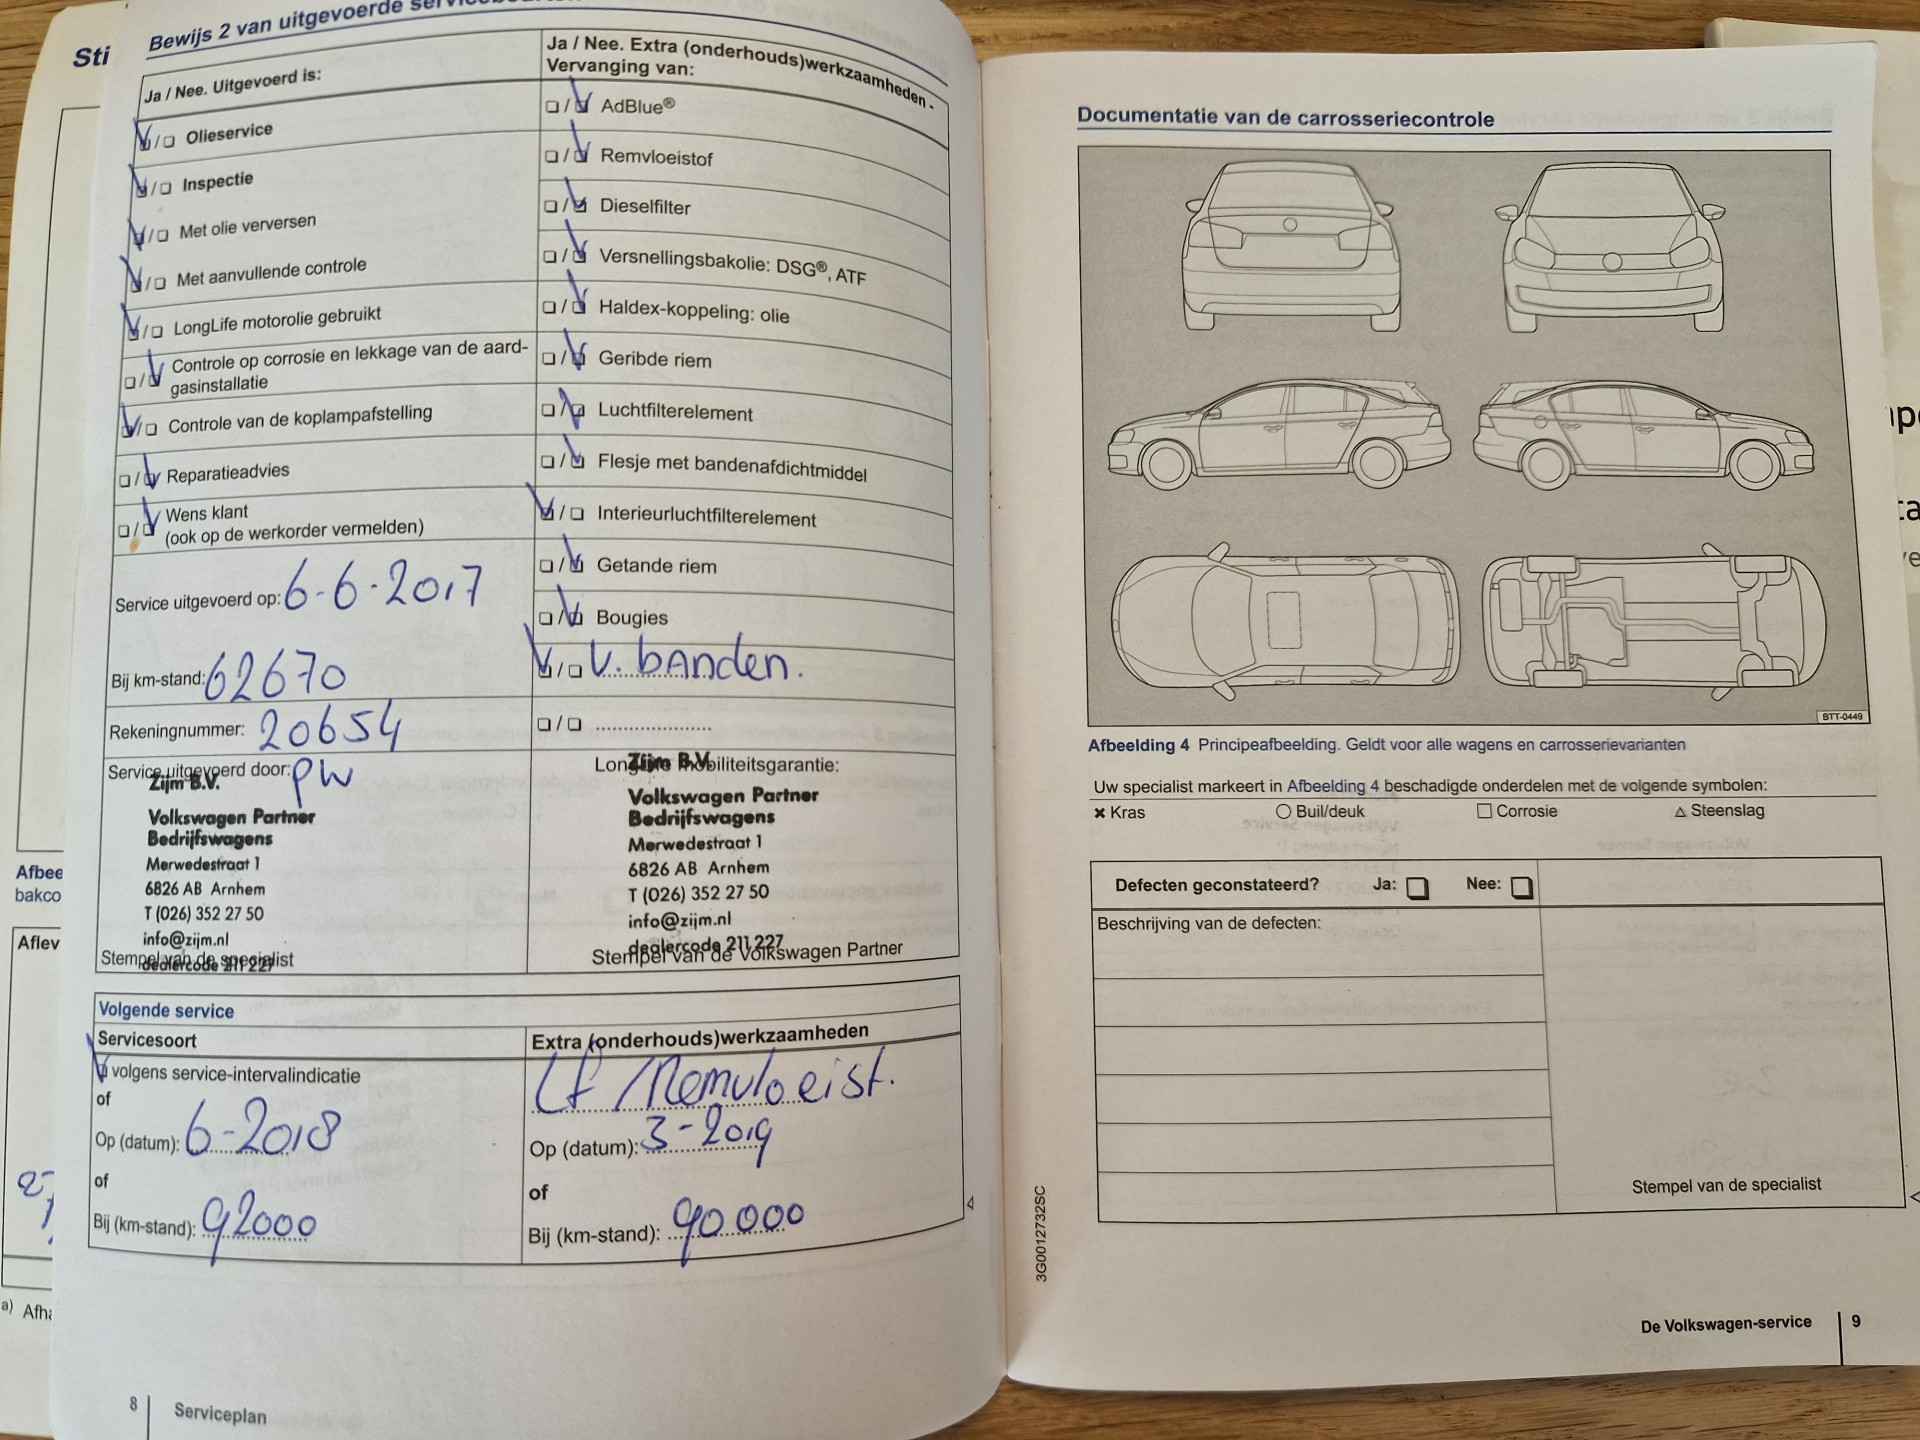 Sti
Afbee
bakco
Aflev
a) Afha
Bewijs 2 van uitgevoerde
Ja / Nee. Uitgevoerd is:
❏/❏ Olieservice
❏/❏ Inspectie
❏/❏ Met olie verversen
❏/❏ Met aanvullende controle
❏/❏ LongLife motorolie gebruikt
❏/❏ Controle op corrosie en lekkage van de aard-
gasinstallatie
❏/❏ Controle van de koplampafstelling
❏/❏ Reparatieadvies
❏/❏ Wens klant
(ook op de werkorder vermelden)
Service uitgevoerd op: 6-6-2017
Bij km-stand: 62670
Rekeningnummer: 20654
Service uitgevoerd door: PW
Zijm B.V.
Volkswagen Partner
Bedrijfswagens
Merwedestraat 1
6826 AB Arnhem
T (026) 352 27 50
info@zijm.nl
dealercode 211 227
Stempel van de specialist
Ja / Nee. Extra (onderhouds)werkzaamheden -
Vervanging van:
❏/❏ AdBlue®
❏/❏ Remvloeistof
❏/❏ Dieselfilter
❏/❏ Versnellingsbakolie: DSG®, ATF
❏/❏ Haldex-koppeling: olie
❏/❏ Geribde riem
❏/❏ Luchtfilterelement
❏/❏ Flesje met bandenafdichtmiddel
❏/❏ Interieurluchtfilterelement
❏/❏ Getande riem
❏/❏ Bougies
❏/❏ V. banden.
❏/❏ ....................
LongLife mobiliteitsgarantie:
Zijm B.V.
Volkswagen Partner
Bedrijfswagens
Merwedestraat 1
6826 AB Arnhem
T (026) 352 27 50
info@zijm.nl
dealercode 211 227
Stempel van de Volkswagen Partner
Volgende service
Servicesoort
volgens service-intervalindicatie
of
Op (datum): 6-2018
of
Bij (km-stand): 92000
Extra (onderhouds)werkzaamheden
Lf / Remvloeist.
Op (datum): 3-2019
of
Bij (km-stand): 90.000
8 Serviceplan
Documentatie van de carrosseriecontrole
BTT-0449
Afbeelding 4 Principeafbeelding. Geldt voor alle wagens en carrosserievarianten
Uw specialist markeert in Afbeelding 4 beschadigde onderdelen met de volgende symbolen:
✖ Kras ○ Buil/deuk □ Corrosie △ Steenslag
Defecten geconstateerd? Ja: ❏ Nee: ❏
Beschrijving van de defecten:
Stempel van de specialist
3G0012732SC
De Volkswagen-service 9